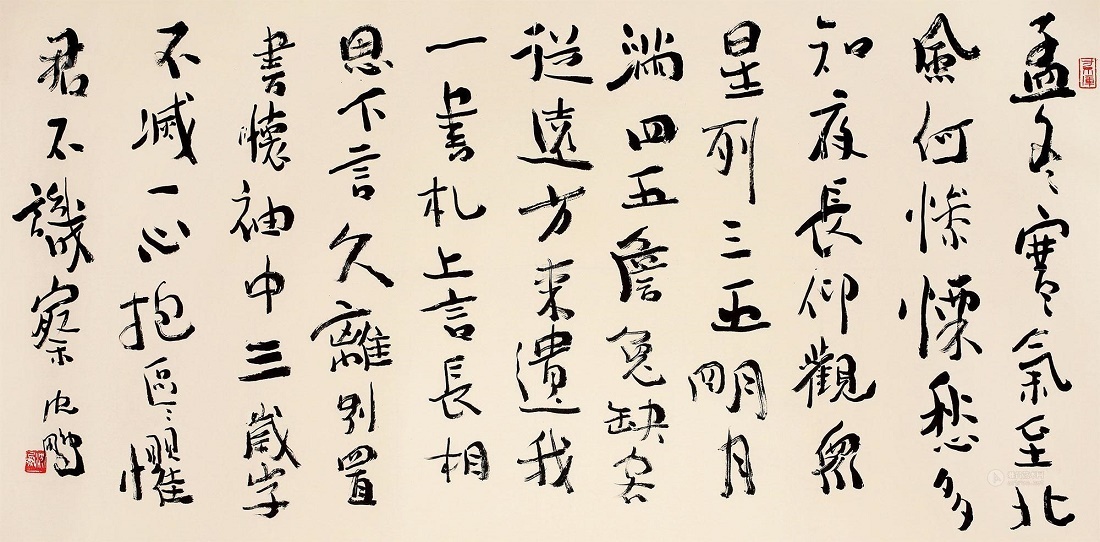 孟冬寒氣至北
風何慘慄愁多
知夜長仰觀眾
星列三五明月
滿四五詹兔缺客
從遠方來遺我
一書札上言長相
思下言久離別置
書懷袖中三歲字
不滅一心抱區〻懼
君不識察 沈鵬